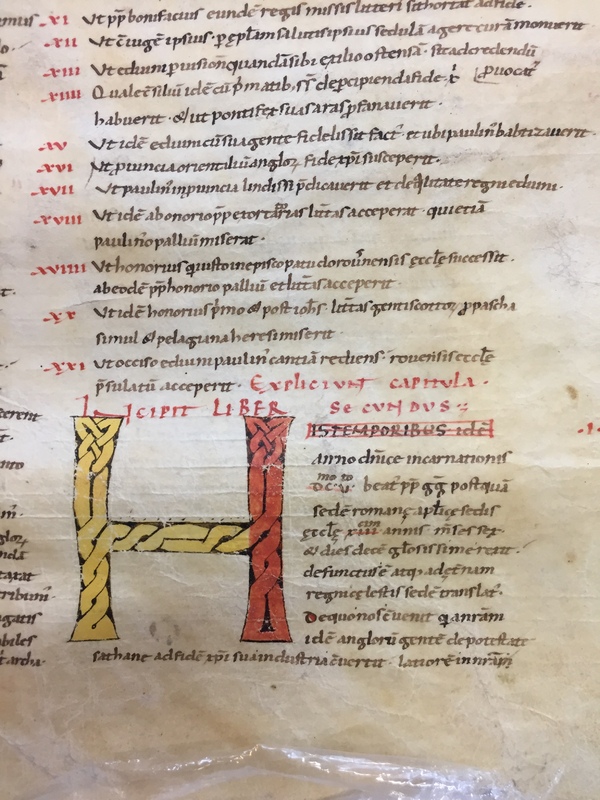 XI Ut pp̄ bonifacius eundē regē missis litteri sit hortat ad fidē.
XII Ut c̄iugē ipsius p̱ ep̄lam salutis ipsius sedulā agere curā monuerit
XIII Ut eduini p̱ uisionē quandā sibi exilio ostensā · sit ad credendū
XIIII Quale c̄siliū idē cū p̄matib; de p̱cipienda fide · p̱uocat᷒
habuerit · & ut pontifex suas aras p̱fanauerit ·
XV Ut idē eduini cū sua gente fidelis sit fact᷒ · et ubi paulin᷒ babtizauerit ·
XVI Ut p̱uincia orientaliū angloꝝ fidē xp̄i susceperit ·
XVII Ut paulin᷒ in p̱uincia lindissi p̄dicauerit et de q̄litate regni eduini ·
XVIII Ut idē ab honorio pp̄ exhortatorias litt̄as acceperat · qui etiā
paulino palliū miserat ·
XVIIII Ut honorius qui iusto in episcopatu dorouernensis eccl̄ę successit ·
ab eodē pp̄ honorio palliū et litt̄as acceperit ·
XX Ut idē honorius p̄mo & post ioh̄s · litt̄as genti scottoꝝ p̱ pascha
simul & pelagiana heresi miserit ·
XXI Ut occiso eduini paulin᷒ cantiā rediens · rouensis eccl̄ę
p̄sulatū acceperit · Expliciunt capitula ·
INCIPIT LIBER SECUNDUS
HIS TEMPORIBUS idē
anno dn̄ice incarnationis
DC V · beat᷒ pp̄ gḡ postquā
sedē romanę ap̄licę sedis
eccl̄ę XIII annis m̄ses sex ·
& dies decē gl̄osissime rexit ·
defunctus ē atq; ad ęt̄nam
regni cęlestis sedē translat᷒ ·
De quo nos c̄uenit q̄a nr̄am
idē anglorū gentē de potestate
sathanę ad fidē xp̄i sua industria c̄uertit · latiorē in nr̄am